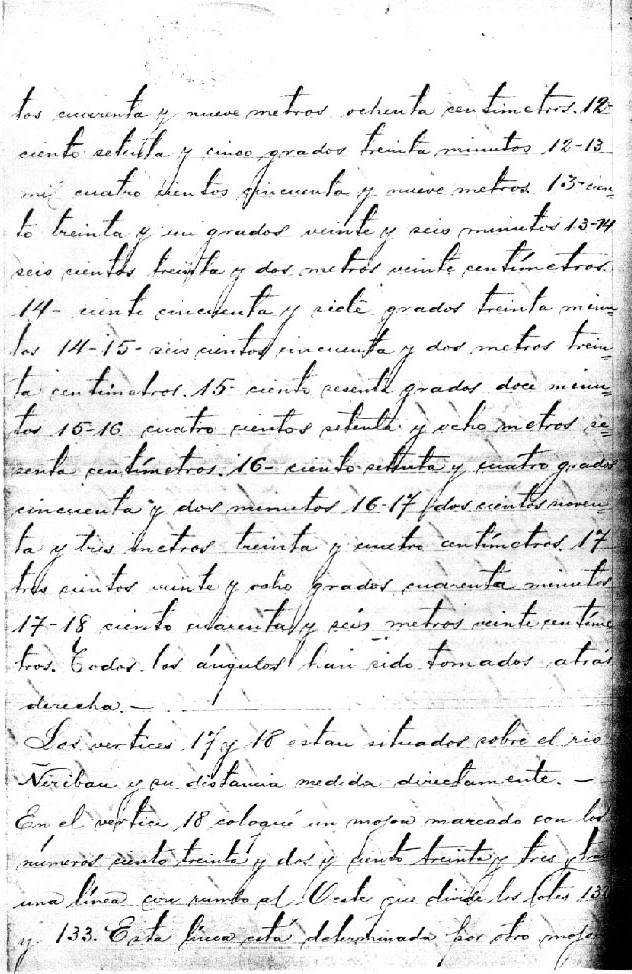 tos cuarenta y nueve metros ochenta centímetros. 12-
ciento setenta y cinco grados treinta minutos 12-13
mil cuatro cientos cincuenta y nueve metros. 13-cien-
to treinta y un grados veinte y seis minutos 13-14
seis cientos treinta y dos metros veinte centímetros.
14- ciento cincuenta y siete grados treinta minu-
tos 14-15- seis cientos cincuenta y dos metros trein-
ta centímetros. 15- ciento sesenta grados doce minu-
tos 15-16 cuatro cientos setenta y ocho metros se-
senta centímetros. 16- ciento setenta y cuatro grados
cincuenta y dos minutos 16-17 dos cientos noven-
ta y tres metros treinta y cuatro centímetros. 17
tres cientos veinte y ocho grados cuarenta minutos
17-18 ciento cuarenta y seis metros veinte centíme
tros. Todos los ángulos han sido tomados atrás
derecha.-
Los vertices 17 y 18 estan situados sobre el rio
Ñiribau y su distancia medida directamente.-
En el vertice 18 coloqué un mojon marcado con los
números ciento treinta y dos y ciento treinta y tres y
una línea con rumbo al Oeste que divide los lotes 132
y 133. Esta línea está determinada por otro mojon